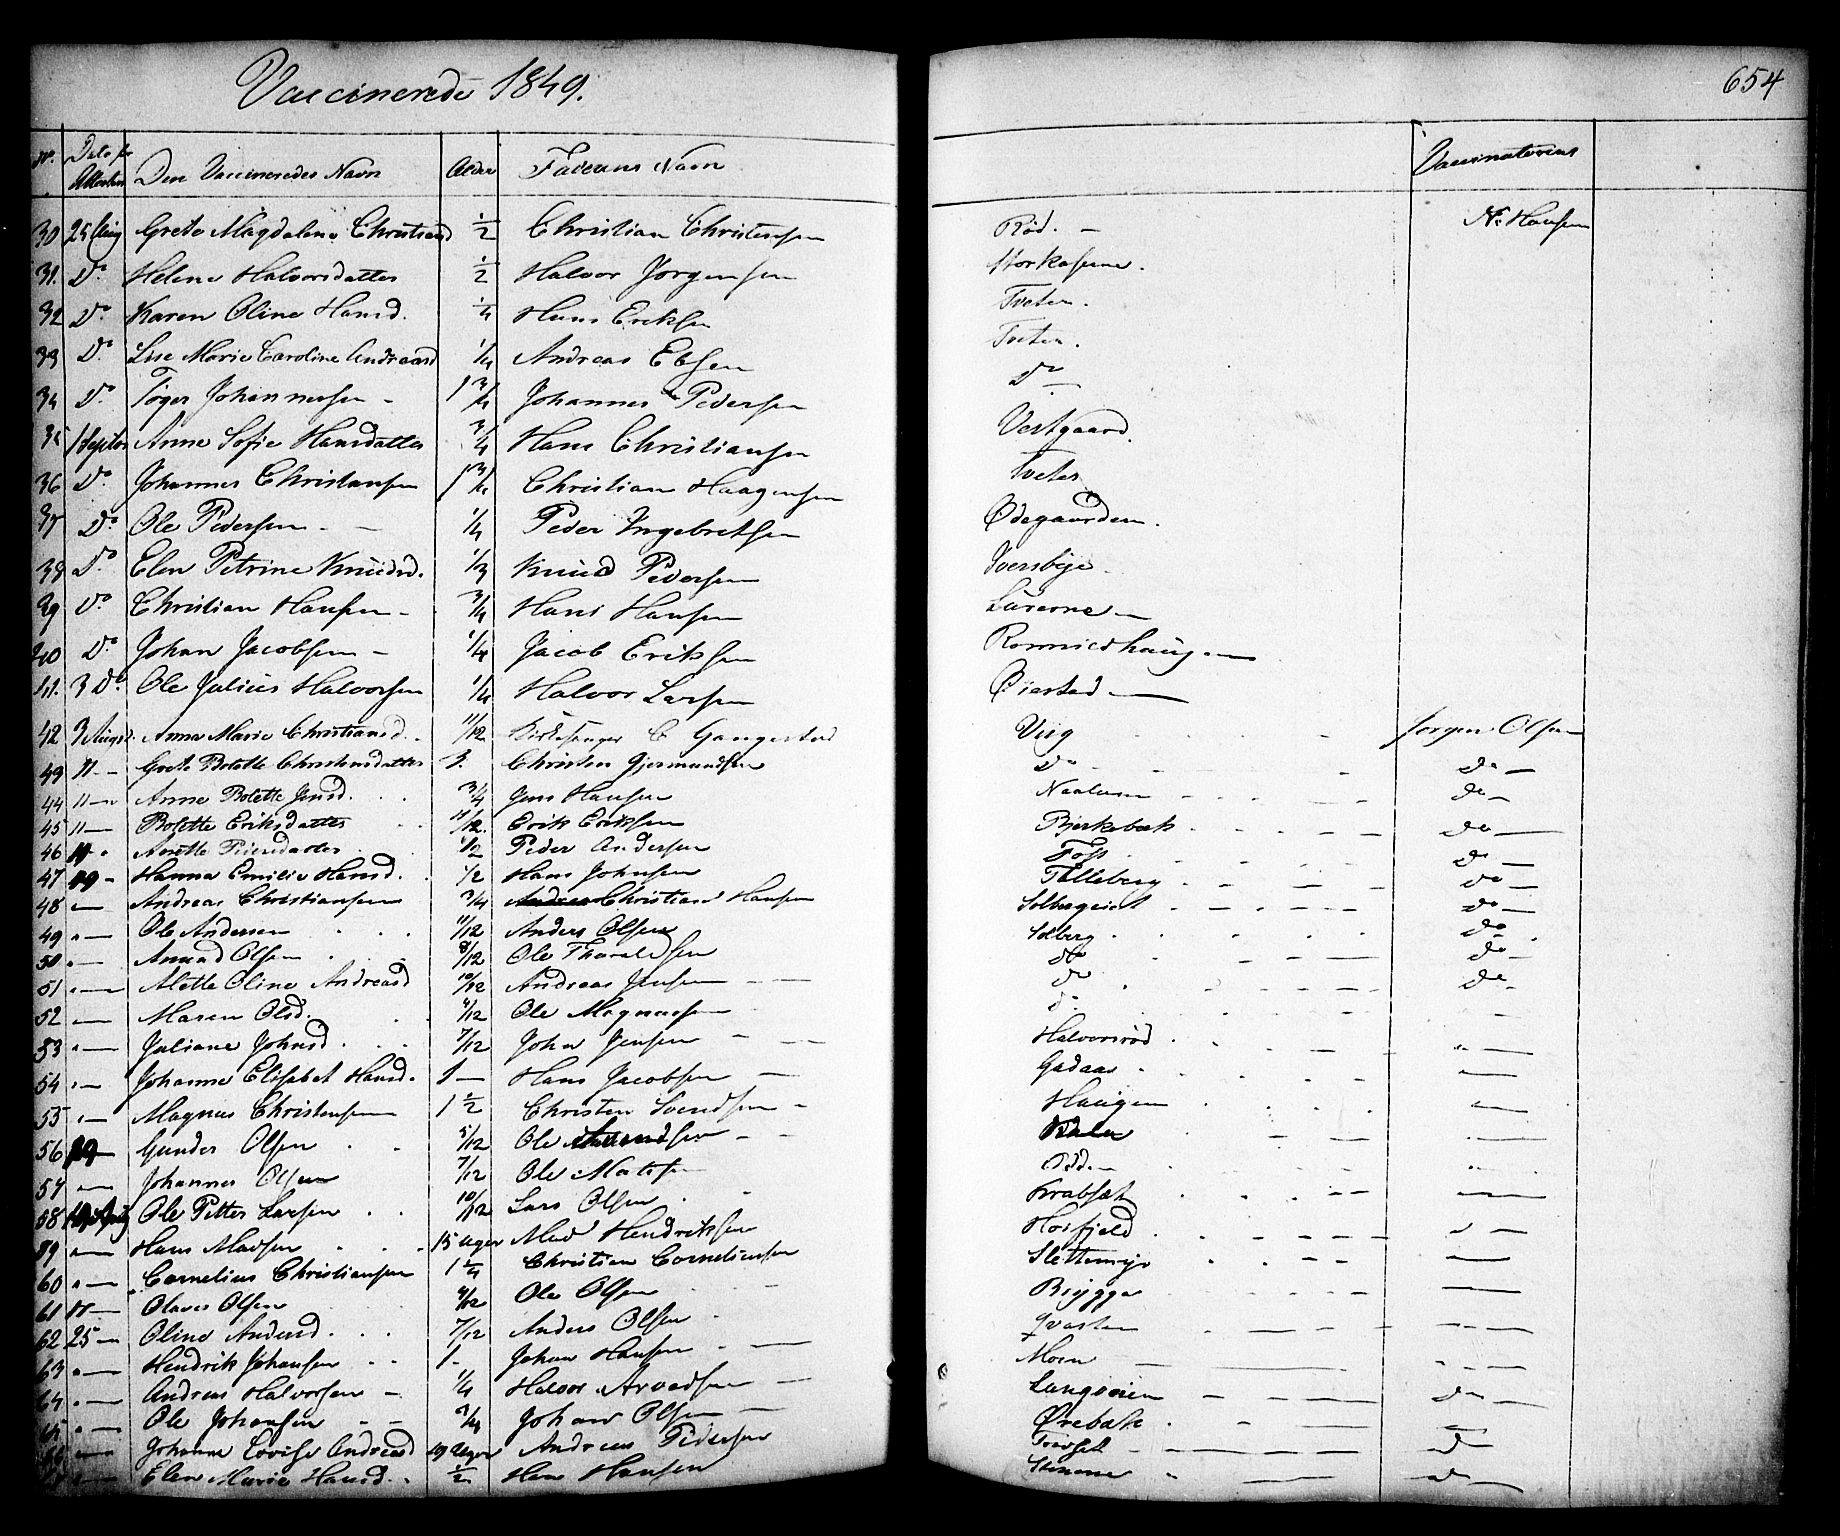 Vaccinerede 1849.
654
No. Dato for Attesten Den Vaccineredes Navn Alder Faderens Navn Vaccinatorens
30 25 Aug Grete Magdalena Christiansd 1/2 Christian Christensen Röd. — N. Hansen
31. Do Helene Halvorsdatter 1/2 Halvor Jörgensen
32 Do Karen Oline Hansd. 1/4 Hans Eriksen Tveten.
33 Do Lise Marie Caroline Andreasd 1/4 Andreas Ebsen Tveten.
34 Do Töger Johannessen - 1 3/4 Johannes Pedersen Do —
35 1 Septbr Anne Sofie Hansdatter 3/4 Hans Christiansen Vestgaard.
36 Do Johannes Christiansen 1 3/4 Christian Haagensen Tveter
37 Do Ole Pedersen - — 1/4 Peder Ingebretsen Ødegaarden.
38 Do Elen Petrine Knudsd. 1/3 Knud Pedersen Iversbye
39 Do Christian Hansen - 3/4 Hans Hansen
40 Do Johan Jacobsen - 1/4 Jacob Eriksen
41. 3 Do Ole Julius Halvorsen 1/4 Halvor Larsen Øiestad —
42 3 Augst. Anna Marie Christiansd. 11/12 Kirkesanger C Gangestad Viig Jörgen Olsen
43 11 - Grete Bolette Christensdatter 1. Christen Gjermundsen Do Do —
44 11 - Anne Bolette Jensd. 3/4 Jens Hansen Do -
45 11 — Bolette Eriksdatter 11/12. Erik Eriksen Bjerkebæk Do —
46 Anette Pedersdatter 1/2 Peder Andersen Foss Do —
47 19 - Hanna Emilie Hansd. 1/2 Hans Johnsen Talleberg Do —
48 — Andreas Christiansen 3/4 Christian Hansen Do —
49 — Ole Andersen 11/12 Anders Olsen Solberg Do
50 — Amund Olsen 8/12 Ole Thoraldsen Do Do —
51 — Alette Oline Andreasd 10/12 Andreas Jensen Do Do -
52 — Maren Olsd. /12 Ole Magnussen Do
53 — Juliane Johnsd. 7/12 John Jensen Halvorsröd —
54 — Johanne Elisabet Hansd. 1 — Hans Jacobsen Gadaas —
55 — Magnus Christensen 1 1/2 Christen Svendsen Haugen —
56 19 Gunder Olsen 5/12 Ole Amundsen —
57 — Johannes Olsen 7/12 Ole Matsen —
58 Ole Petter Larsen 10/12 Lars Olsen Krabsæt —
59 — Hans Madsen 15 Uger Mads Hendriksen Horfjeld —
60 — Cornelius Christiansen 1 1/4 Christian Corneliussen Slettemyr —
61 11 — Olaves Olsen /12 Ole Olsen Brygga —
62 25 — Oline Andersd. 7/12 Anders Olsen Qvasten —
63 — Hendrik Johansen 1 - Johan Hansen Moen —
64 — Andreas Halvorsen - 1/4 Halvor Arvedsen Langöien Do —
65 — Ole Johansen 3/4 Johan Olsen Ørebæk —
66 — Johanne Lovise Andreasd 19 Uger Andreas Pedersen Do
— Elen Marie Hansd. 1/2 Hans Hansen Do